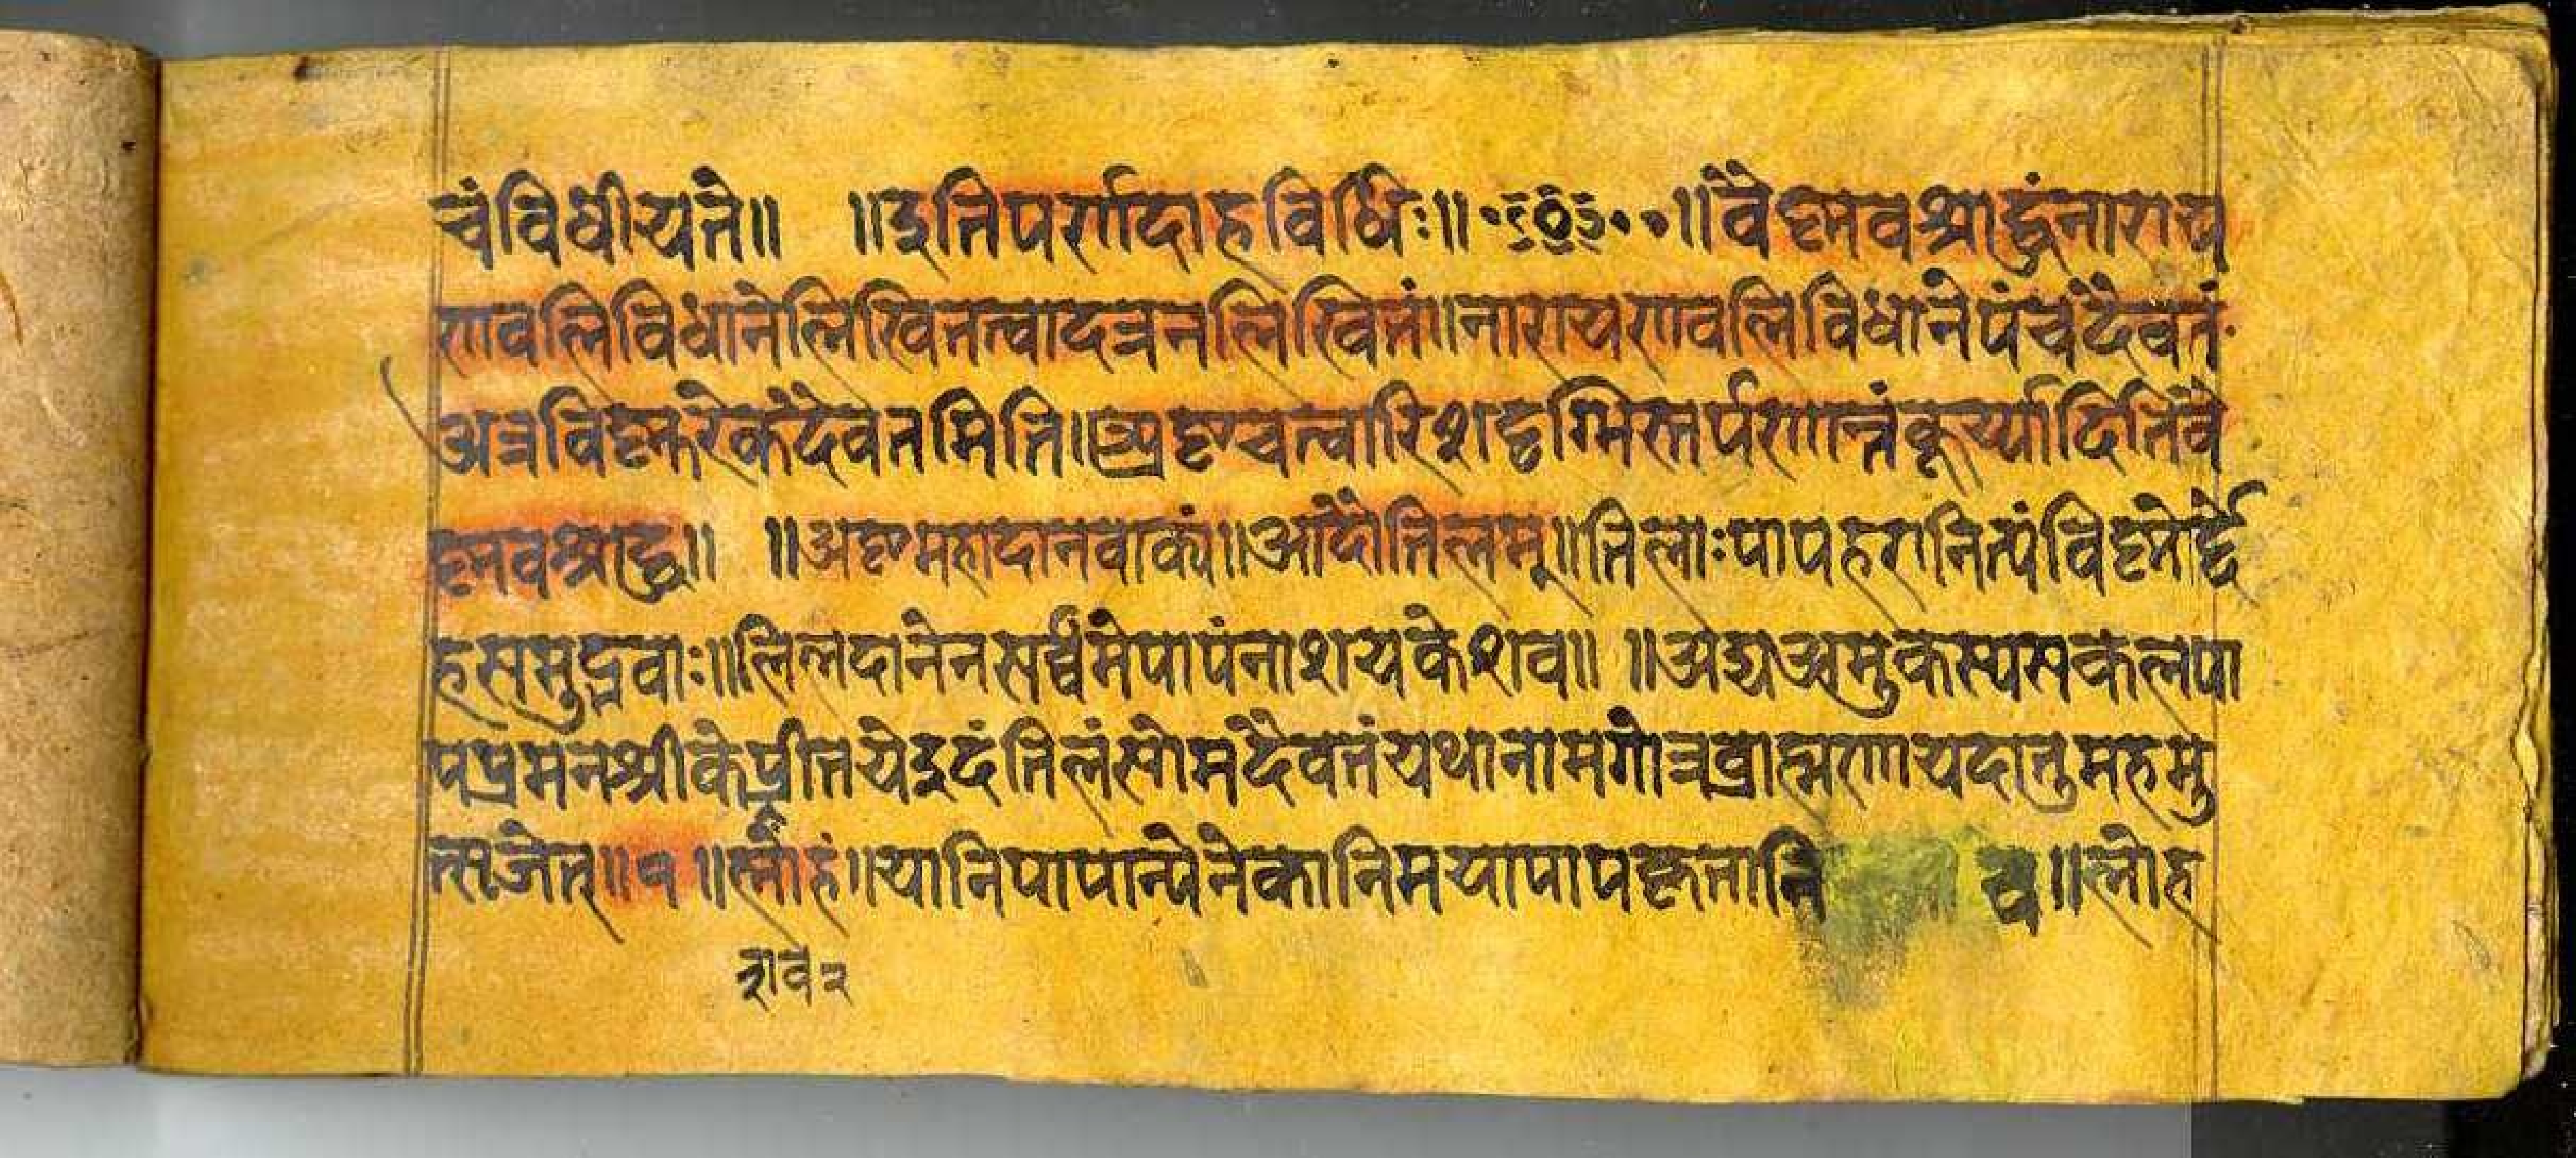 चंविधीयते॥ ॥इतिपर्णदाहविधिः॥ ॥वैष्णवश्राद्धंनाराय
णवलिविधानेलिखितत्वादत्रनलिखितं॥नारायणवलिविधानेपंचदैवतं
अत्रविष्णुरेकदैवतमिति॥अष्टचत्वारिशदृग्भिस्तर्पणान्तंकूर्य्यादितिवै
ष्णवश्राद्ध॥ ॥अष्टमहादानवाक्यं॥आदौतिलम्॥तिलाःपापहरानित्यंविष्णोर्द्दे
हसमुद्भवाः॥तिलदानेनसर्व्वंमेपापंनाशयकेशव॥ ॥अद्यअमुकस्यसकलपा
पप्रमनश्रीकेप्रीतयेइदंतिलंसोमदैवतंयथानामगोत्रब्राह्मणायदातुमहमु
त्सृजेत्॥१॥लोहं॥यानिपापान्यनेकानिमयापापकृतानि च॥लोह
शव२